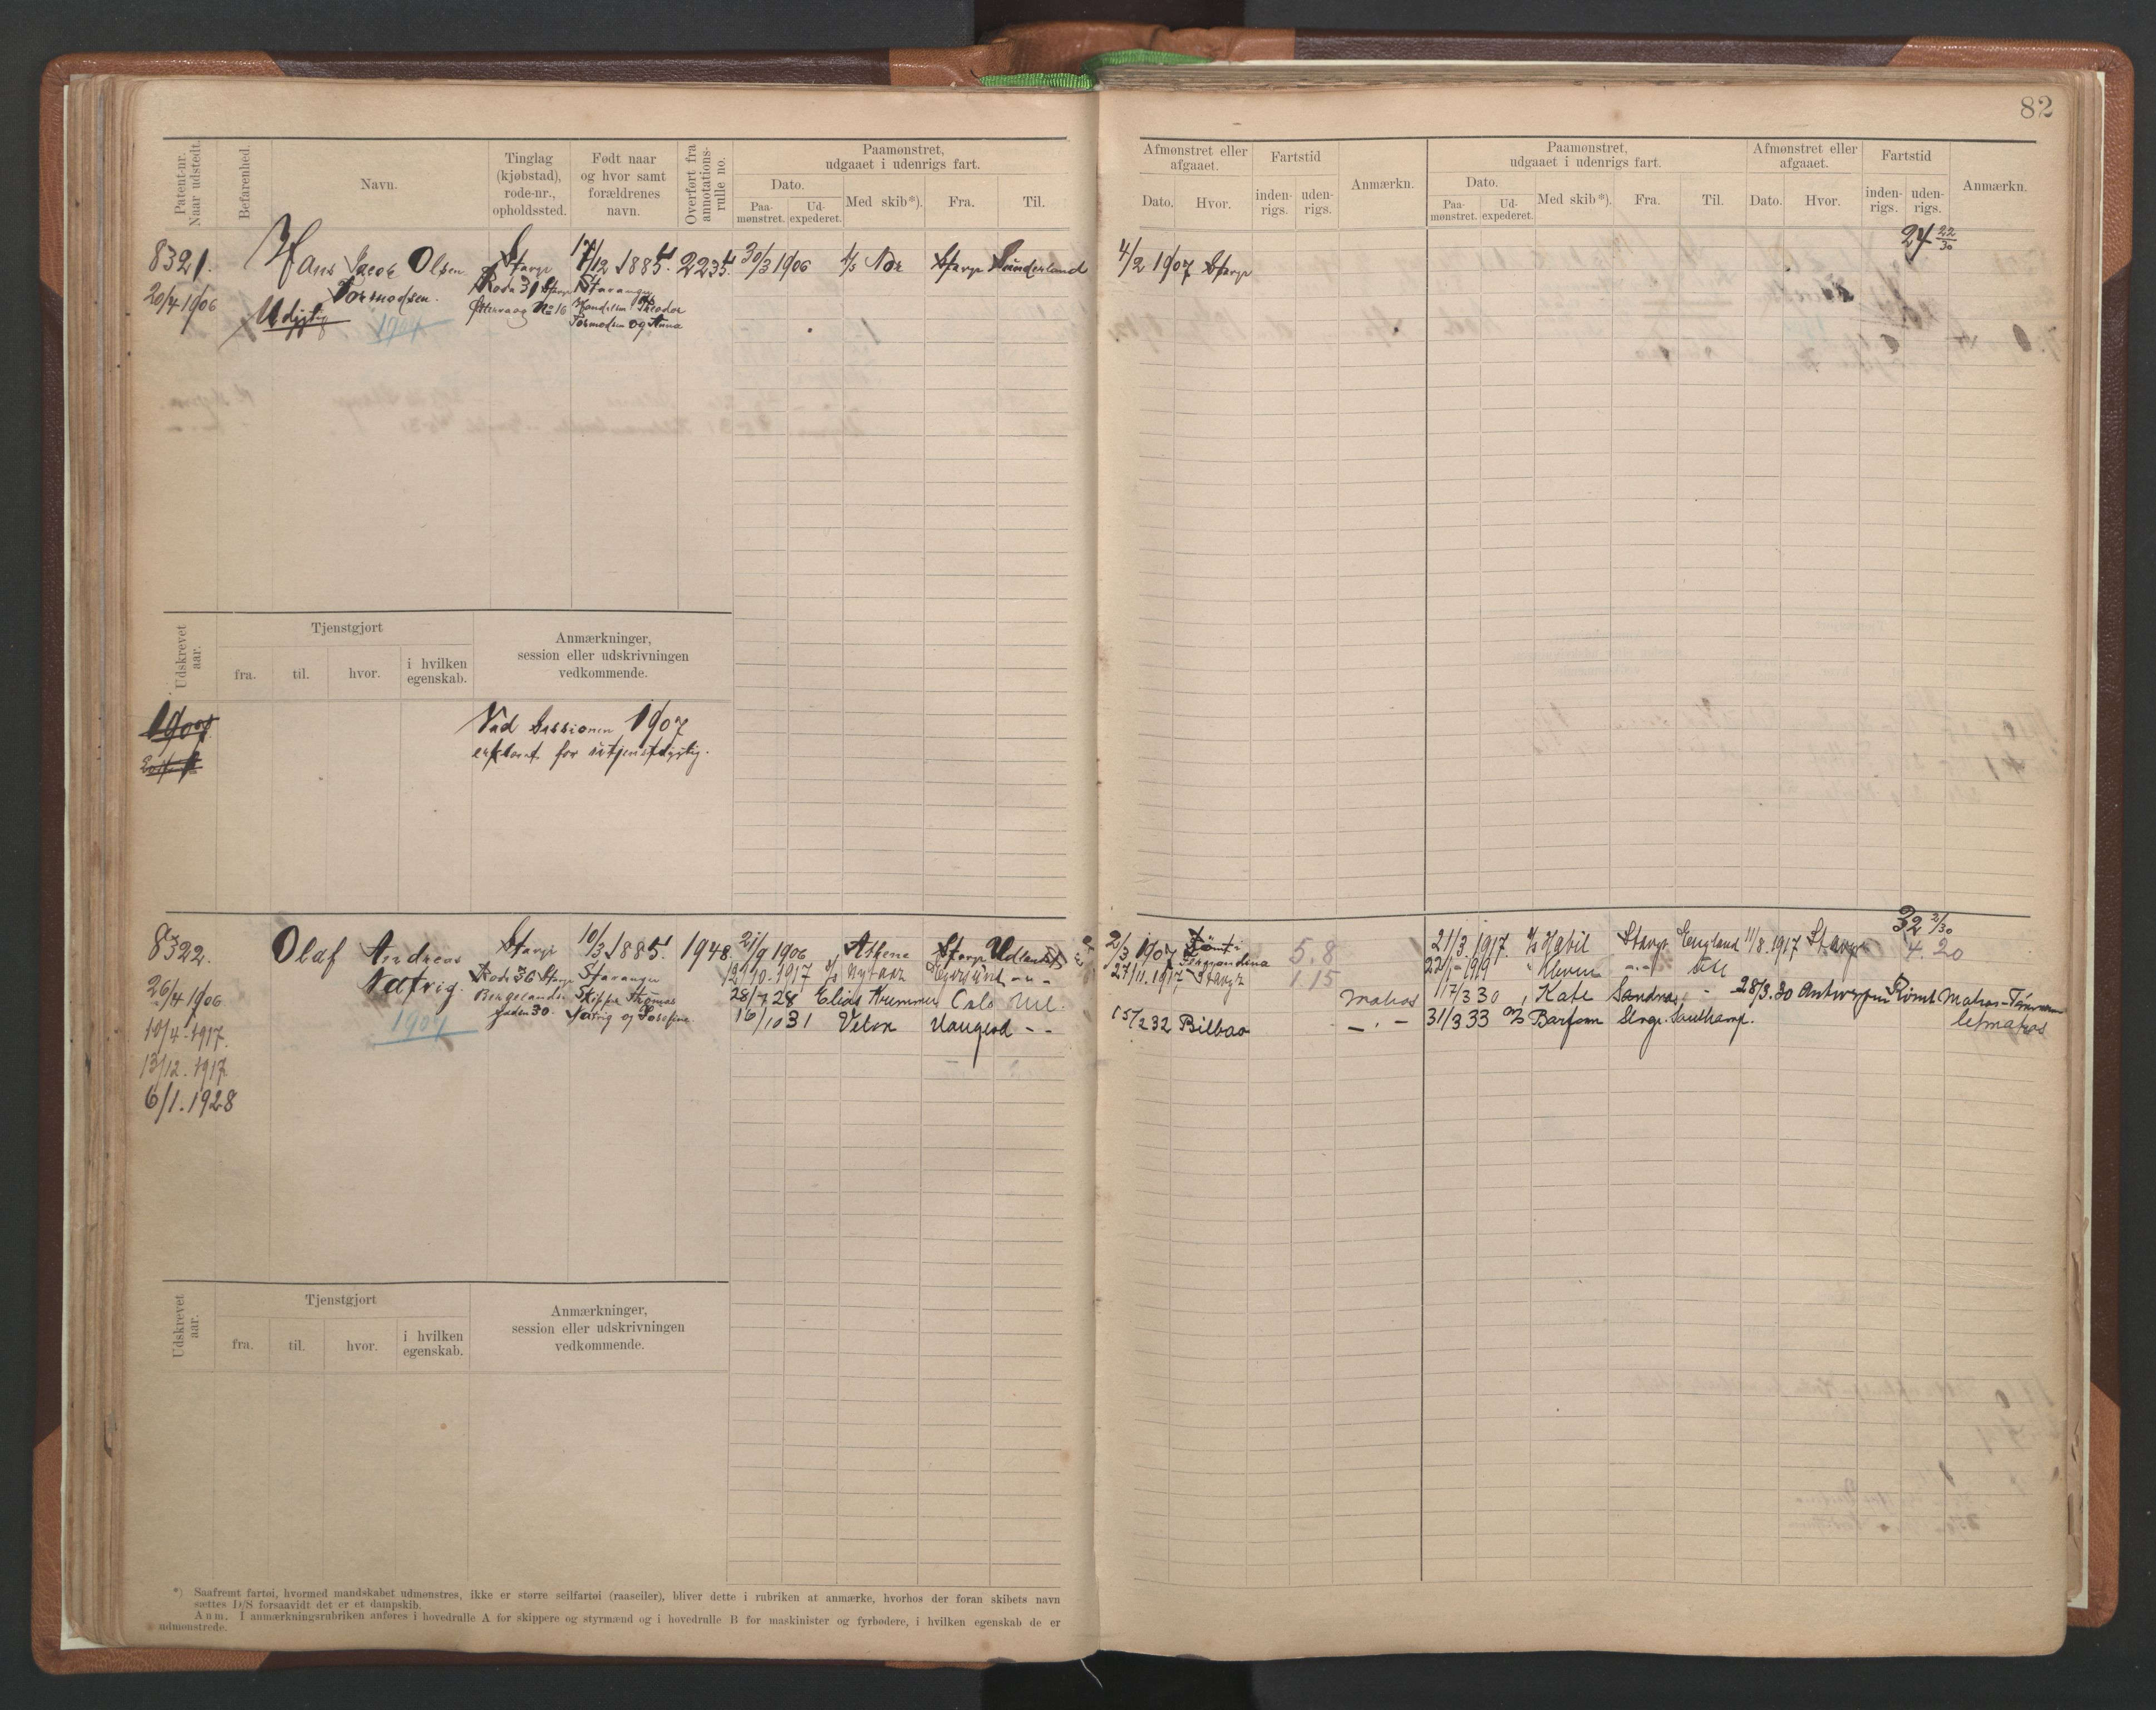 82
Patent-nr.
Naar udstedt.
Befarenhed.
Navn.
Tinglag
(kjøbstad),
rode-nr.,
opholdssted.
Født naar
og hvor samt
forældrenes
navn.
Overført fra
annotations-
rulle no.
Paamønstret,
udgaaet i udenrigs fart.
Dato.
Paa-
mønstret.
Ud-
expederet.
Med skib*).
Fra.
Til.
Afmønstret eller
afgaaet.
Dato.
Hvor.
Fartstid
inden-
rigs.
uden-
rigs.
Anmærkn.
Paamønstret,
udgaaet i udenrigs fart.
Dato.
Paa-
mønstret.
Ud-
expederet.
Med skib*).
Fra.
Til.
Afmønstret eller
afgaaet.
Dato.
Hvor.
Fartstid
inden-
rigs.
uden-
rigs.
Anmærkn.
24 22/30
8321.
20/4 1906
Hans Jacob Olsen
Tormodsen.
Udygtig
1907
Stavgr
Rode 31 Stavgr
No 16
17/12 1885.
Stavanger
Theodor
Tormodsen og Anna
2235.
30/3 1906
Nor
Stavgr
Sunderland
4/2 1907 Stavgr
Udskrevet
aar.
Tjenstgjort
fra.
til.
hvor.
i hvilken
egenskab.
Anmærkninger,
session eller udskrivningen
vedkommende.
1907.
Ved Sessionen 1907
erklæret for utjenstdygtig.
32 2/30
8322.
26/4 1906
10/4 - 1917.
13/12. 1917.
6/1. 1928
Olaf Andreas
Natvig.
1907
Stavgr
Rode 36 Stavgr
Bergelands
gaden 30.
10/3 1885.
Stavanger
Skipper Thomas
Natvig og Josefine
1948.
21/9 1906 Athene Stavgr Udlandet
12/10. 1917 Egersund - " -
28/7 28 Elias Kremmer Oslo Utl.
16/10 31 Velox Haugesd - -
2/3 1907
Fernandina 5.8
27/11. 1917 Stavgr 1 15
Matros
15/2 32 Bilbao
21/3. 1917. Stavgr England 11/8. 1917 Stavgr 4. 20
22/1 - 1919 Kleven
17/3 30 Kate Sandnes - 28/3. 30 Antwerpen Rømt Matros-Tømmerm
31/3 33 Barfonn Stvgr. Southamp.
letmatros
Udskrevet
aar.
Tjenstgjort
fra.
til.
hvor.
i hvilken
egenskab.
Anmærkninger,
session eller udskrivningen
vedkommende.
*) Saafremt fartøi, hvormed mandskabet udmønstres, ikke er større seilfartøi (raaseiler), bliver dette i rubriken at anmærke, hvorhos der foran skibets navn
sættes D/S forsaavidt det er et dampskib.
Anm. I anmærkningsrubriken anføres i hovedrulle A for skippere og styrmænd og i hovedrulle B for maskinister og fyrbødere, i hvilken egenskab de er
udmønstrede.